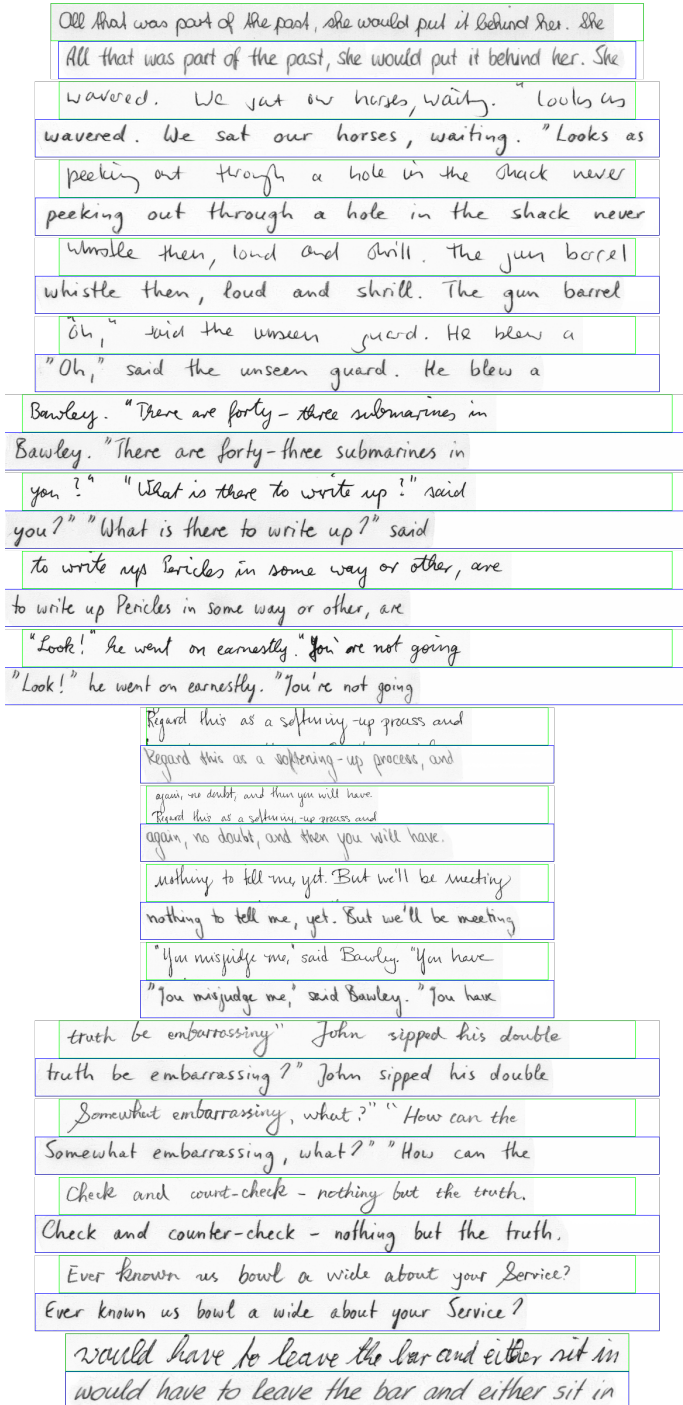 All that was part of the past, she would put it behind her. She
All that was part of the past, she would put it behind her. She
wavered. We sat our horses, waiting. "Looks as
wavered. We sat our horses, waiting. "Looks as
peeking out through a hole in the shack never
peeking out through a hole in the shack never
whistle then, loud and shrill. The gun barrel
whistle then, loud and shrill. The gun barrel
"Oh," said the unseen guard. He blew a
"Oh," said the unseen guard. He blew a
Bawley. "There are forty-three submarines in
Bawley. "There are forty-three submarines in
you?" "What is there to write up?" said
you?" "What is there to write up?" said
to write up Pericles in some way or other, are
to write up Pericles in some way or other, are
"Look!" he went on earnestly. "You're not going
"Look!" he went on earnestly. "You're not going
Regard this as a softning-up process and
Regard this as a softening-up process, and
again, no doubt, and then you will have.
Regard this as a softning-up process and
again, no doubt, and then you will have.
nothing to tell me, yet. But we'll be meeting
nothing to tell me, yet. But we'll be meeting
"You misjudge me," said Bawley. "You have
"You misjudge me," said Bawley. "You have
truth be embarrassing" John sipped his double
truth be embarrassing?" John sipped his double
Somewhat embarrassing, what?" "How can the
Somewhat embarrassing, what?" "How can the
Check and count-check - nothing but the truth.
Check and counter-check - nothing but the truth.
Ever known us bowl a wide about your Service?
Ever known us bowl a wide about your Service?
would have to leave the bar and either sit in
would have to leave the bar and either sit in